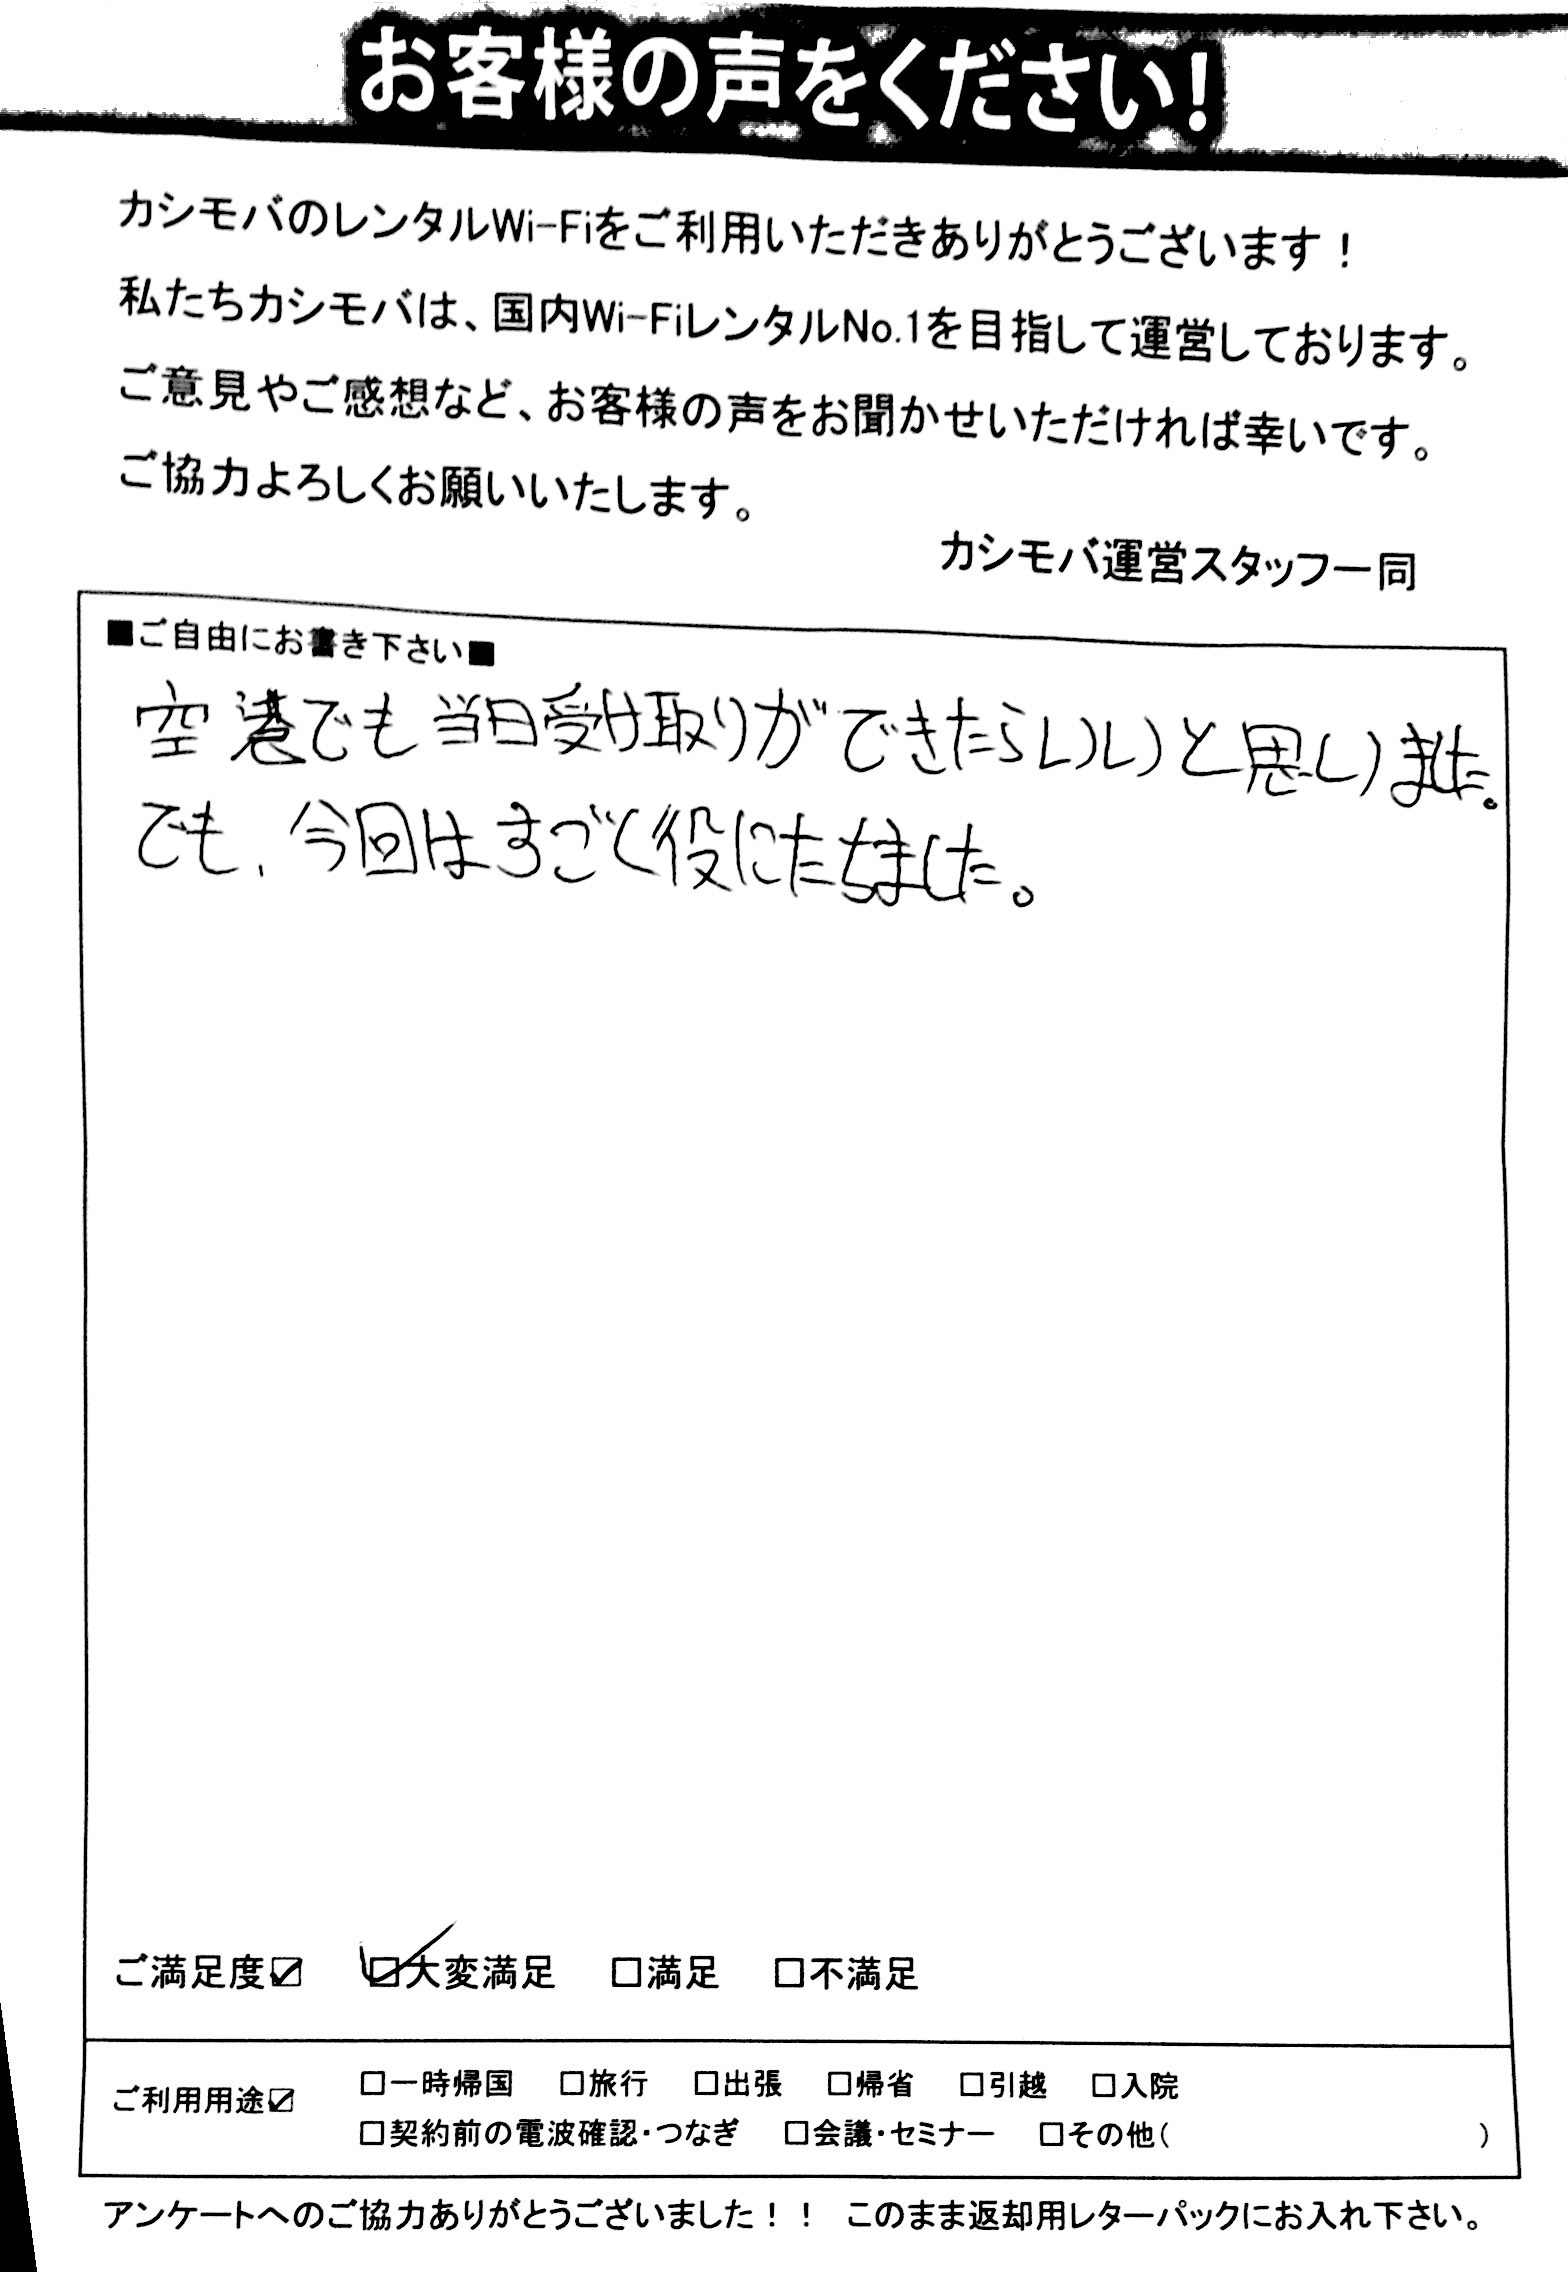 お客様の声をください!
カシモバのレンタルWi-Fiをご利用いただきありがとうございます！
私たちカシモバは、国内Wi-FiレンタルNo.1を目指して運営しております。
ご意見やご感想など、お客様の声をお聞かせいただければ幸いです。
ご協力よろしくお願いいたします。
カシモバ運営スタッフ一同
■ご自由にお書き下さい■
空港でも当日受け取りができたらいいと思いました。
でも、今回はすごく役にたちました。
ご満足度☑ ☑大変満足 □満足 □不満足
ご利用用途☑ □一時帰国 □旅行 □出張 □帰省 □引越 □入院
□契約前の電波確認・つなぎ □会議・セミナー □その他( )
アンケートへのご協力ありがとうございました！！ このまま返却用レターパックにお入れ下さい。